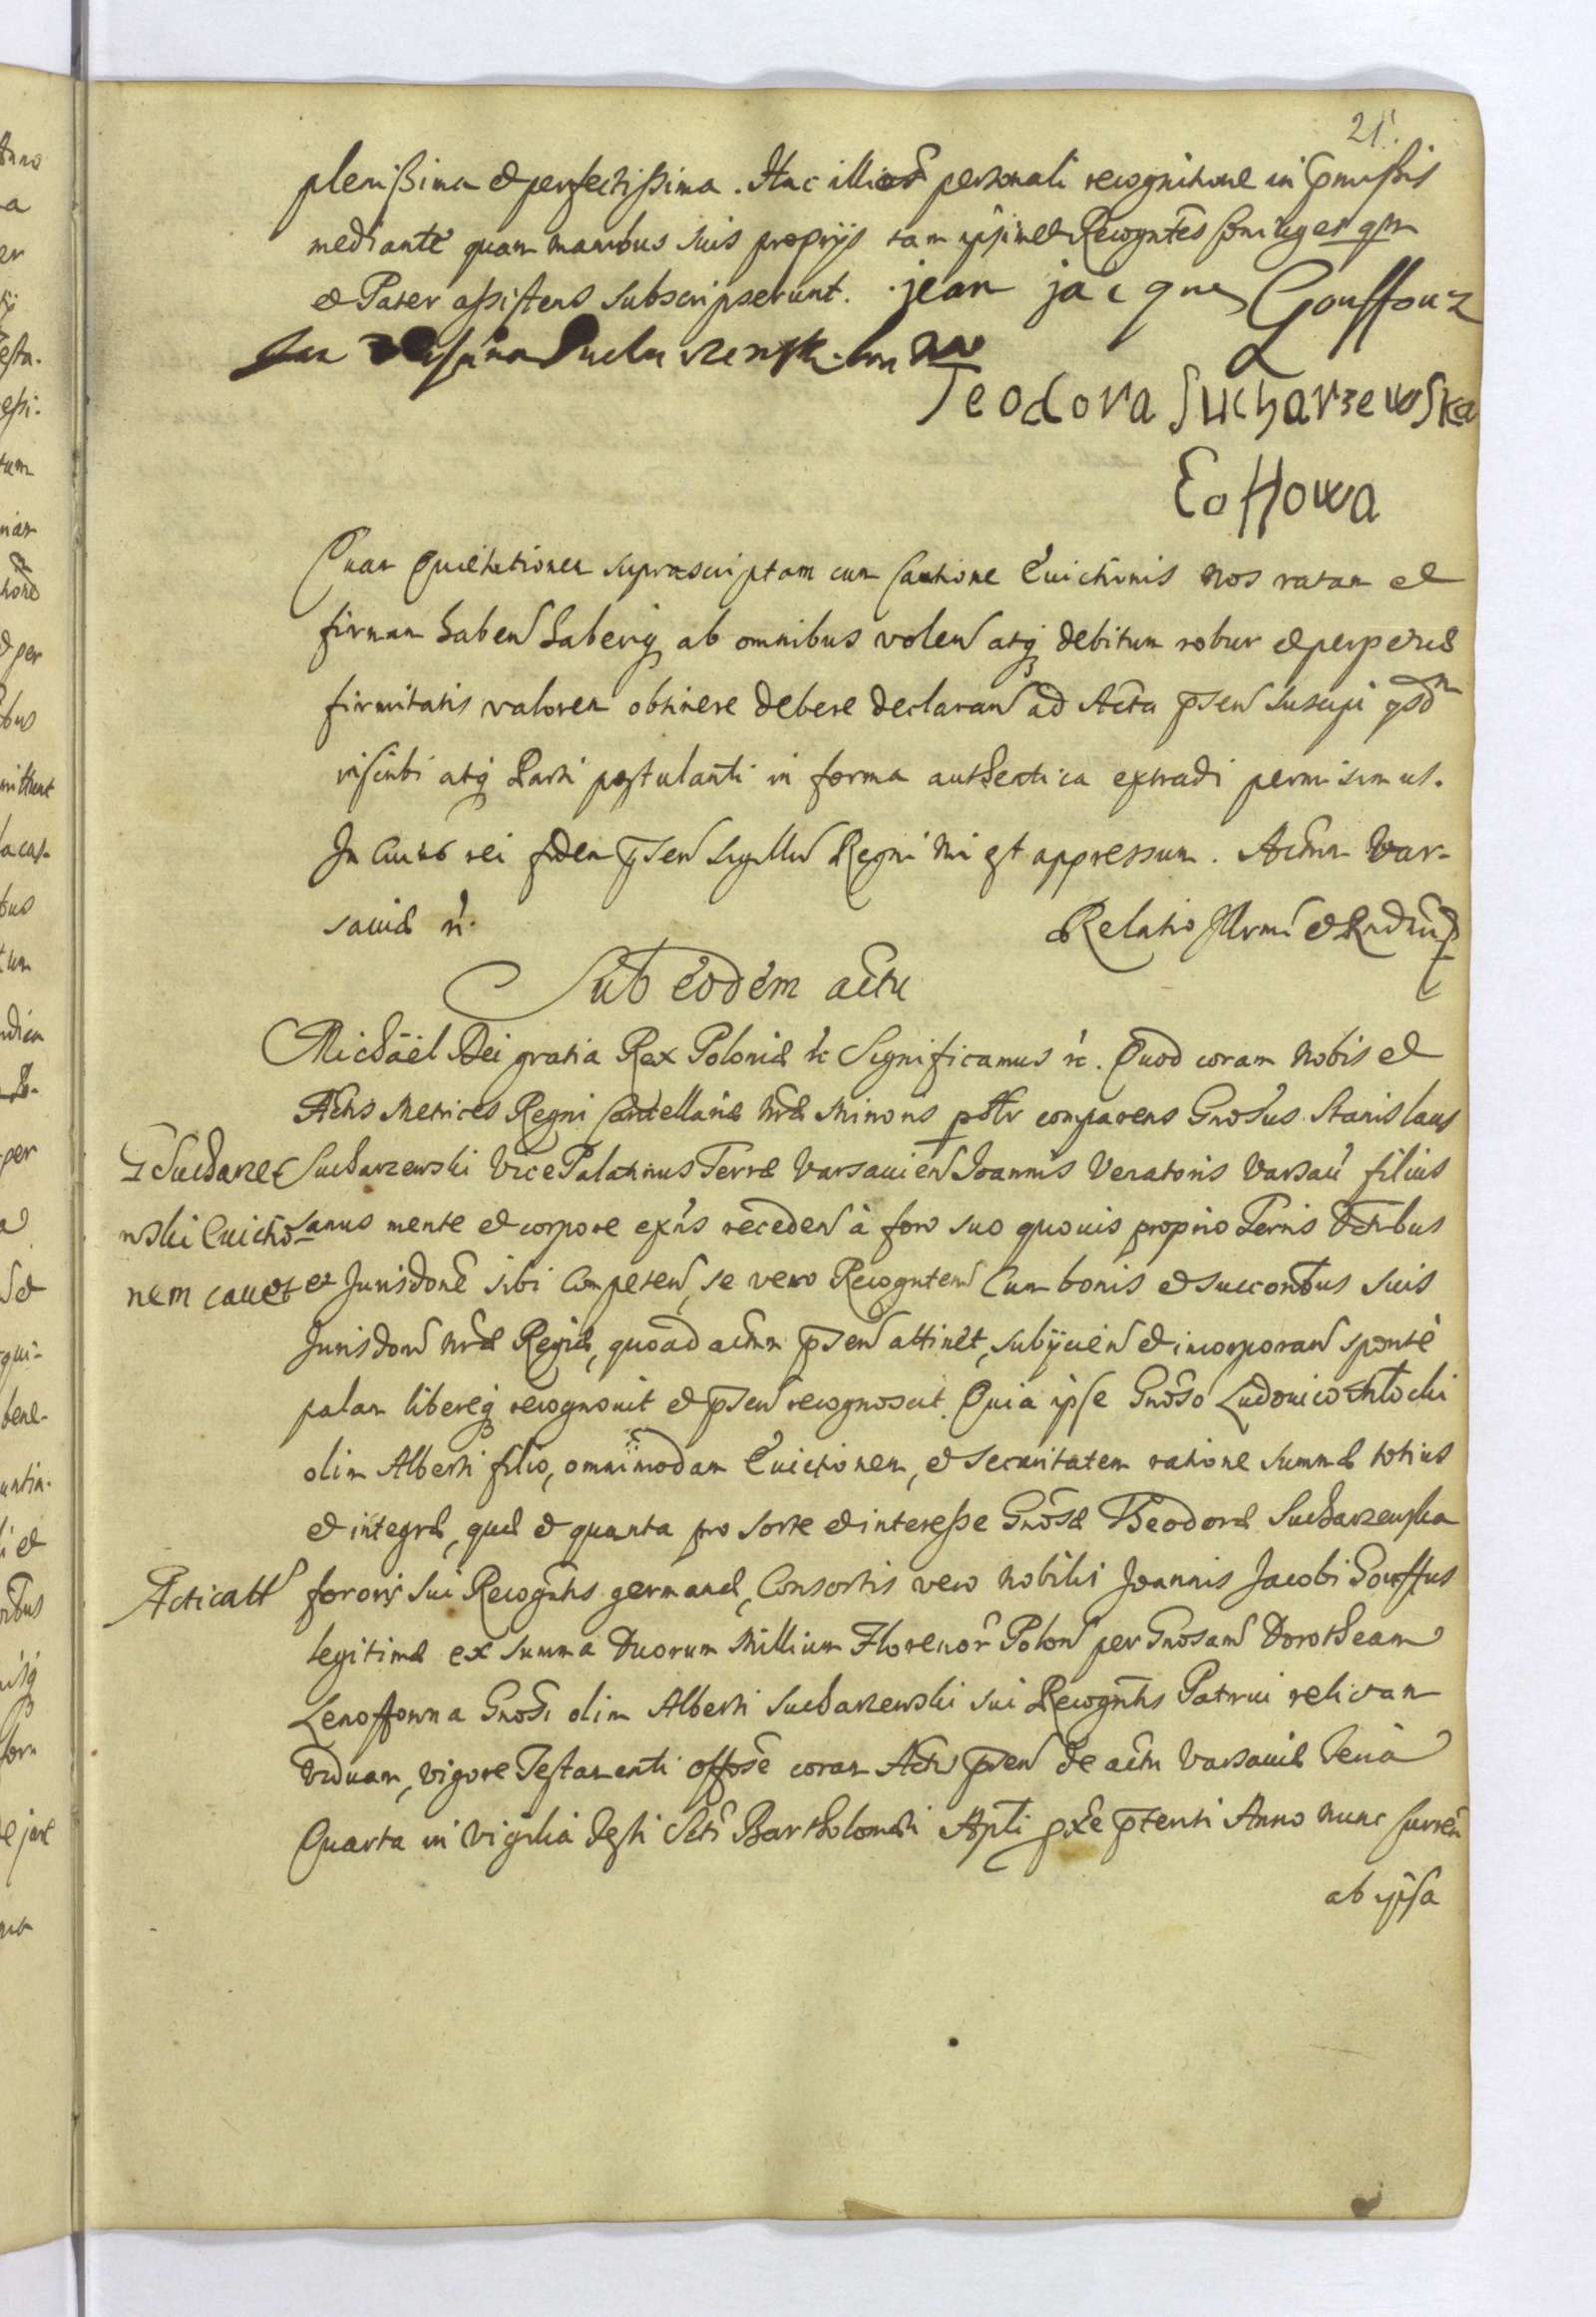 21.
plenissima et perfectissima. Hac illius personali recognitione in pmissis
mediante quam manibus suis proprijs tam ipsimet Recogntes Coniuges qm
et Pater assistens subscripserunt. jean jacques Gouffouz
Teodora Sucharzewska
Quam Quietationem suprascriptam cum Cautione Euictionis nos ratam et
firmam haben haberiq ab omnibus volen atq debitum robur et perpetuæ
firmitatis valorem obtinere debere declaran ad Acta psen suscipi
inscribi atq Parti postulanti in forma authentica extradi permisimus.
In Cuius rei fidem psen sigillu Regni Nri est appressum. Actum Var-
sauiæ rc. Relatio Illrmi et Rndmi
Sub eodem actu
Michäel Dei gratia Rex Poloniæ rc Significamus rc. Quod coram Nobis et
Actis Metrices Regni Cancellariæ Nræ Minoris psltr comparens Gnosus Stanislaus
G Sucharze- Sucharzewski Vice Palatinus Terræ Varsauien Joannis Venatoris Varsau filius
wski Euictio- sanus mente et corpore exns receden à foro suo quouis proprio Terris Ditibus
nem cauet et Jurisdone sibi Competen, se vero Recognten Cum bonis et successoribus suis
Jurisdon Nræ Regiæ, quoad actum psen attinet, subijcien et incorporan sponte
palam libereq recognouit et psen recognoscit. Quia ipse Gnoso Ludouico Młocki
olim Alberti filio, omnimodam Euictionem, et securitatem ratione summæ totius
et integræ, quæ et quanta pro sorte et interesse Gnosæ Theodoræ Sucharzewska
Acticatt sororis sui Recogntis germanæ, Consortis vero Nobilis Joannis Jacobi Gouffus
legitimæ ex summa Duorum Millium Florenor Polon per Gnosam Dorotheam
Lenoffowna Gnosi olim Alberti Sucharzewski sui Recogntis Patrui relictam
viduam, vigore Testamenti coram Actis psen de actu Varsauiæ Feria
Quarta in Vigilia Festi Scti Bartholomæi Apli pxe pteriti Anno nunc curren
ab ipsa